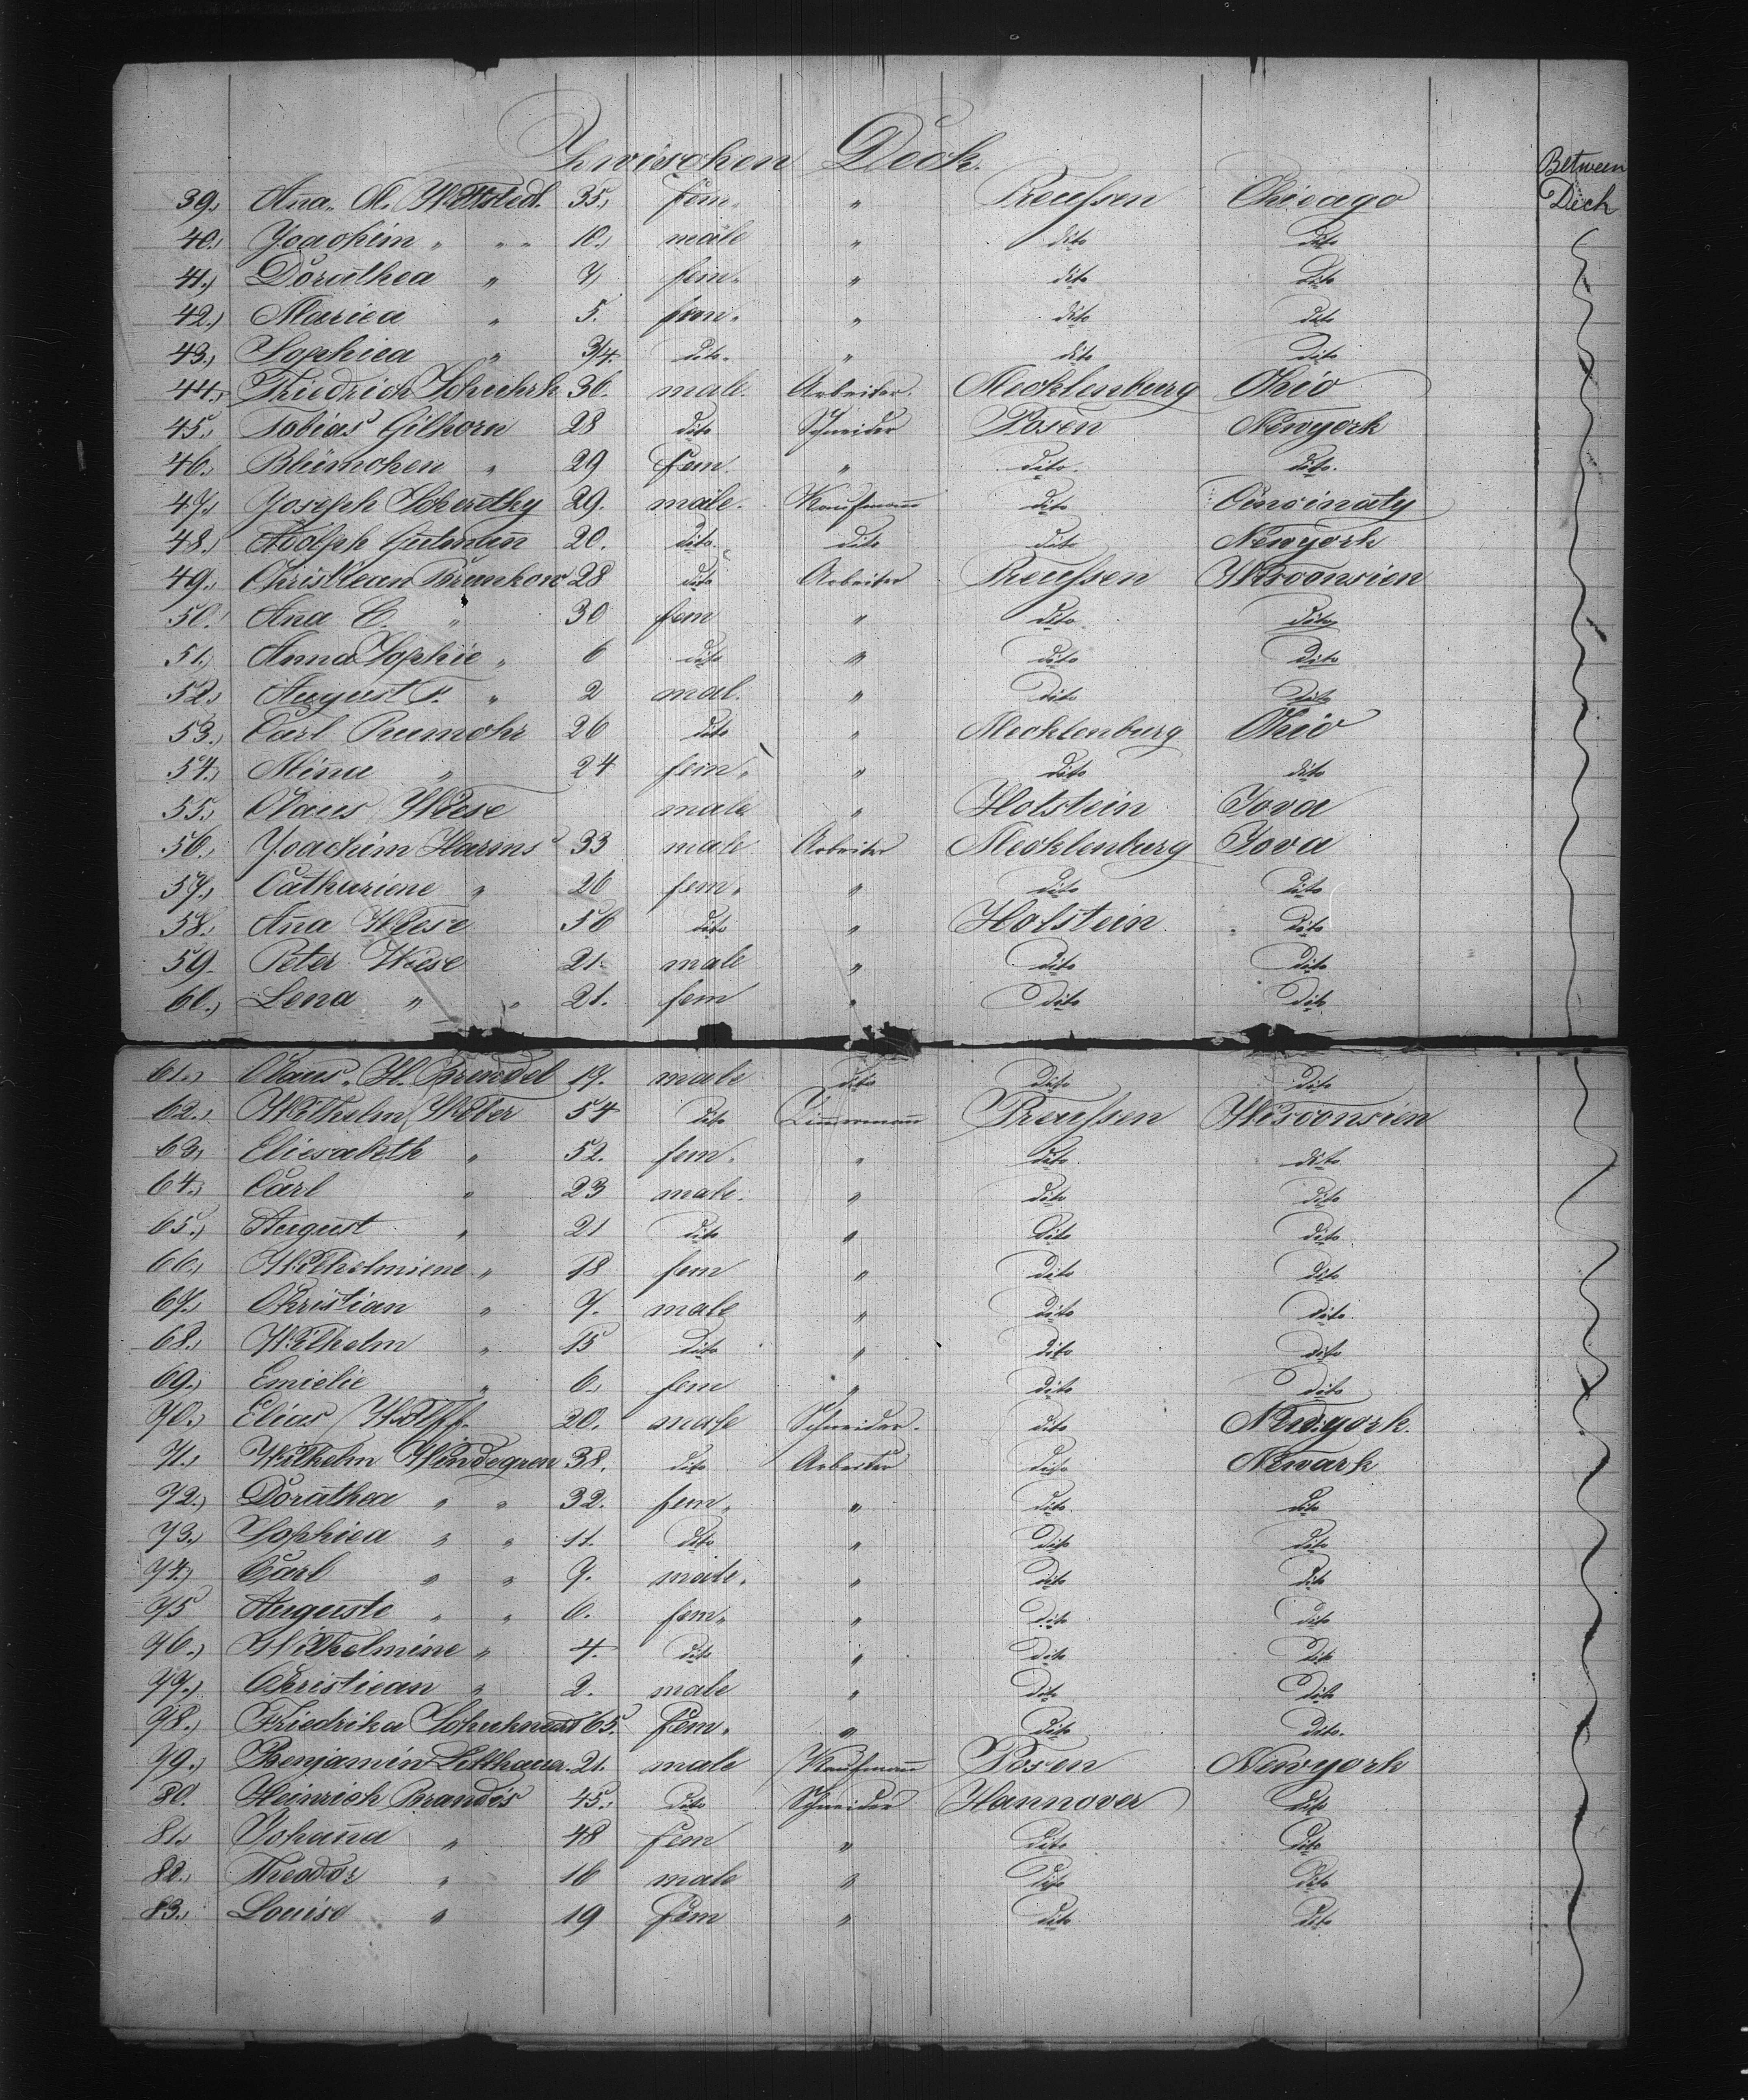 Zwischen Deck.
Between Deck
39. Aña. M. Wittstedt. 35. fem. " Preußen Chicago
40. Joachim " " " 10. male " dito dito
41. Dorüthea " 7 fem. " dito dito
42. Mariea " 5. fem. " dito dito
43. Sophiea " 3/4. dito. " dito dito
44. Friedrich 36. male. Arbeiter. Mecklenburg Ohio
45. Tobias Gilhorn 28 dito Schneider Posen Newyork
46. Blümchen " 29 fem. " dito. dito.
47. Joseph 29. male. Kaufmañ dito Cincinaty
48. Adolph Gutmañ 20. dito. dito dito Newyork
49. Christiean Brunkow 28 dito Arbeiter Preußen Wisconsien
50. Aña C. " 30 fem " dito dito
51. Anna Sophie " 6 dito " dito dito
52. August F. " 2 mal. " dito dito
53. Carl Rumohr 26 dito " Mecklenburg Ohio
54. Miña " 24 fem. " dito dito
55. Claus Wiese male " Holstein Jova
56. Joachim Harms 33 male Arbeiter Mecklenburg Jova
57. Cathariene " 26 fem. " dito dito
58. Aña Wiese 56 dito " Holstein dito
59. Peter Wiese 21. male " dito dito
60. Lena " " 21. fem " dito dito
61. Claus. H. Brendel 17. male dito dito dito
62. Wilhelm Weber 54 dito Zimmermañ Preußen Wisconsien
63. Eliesabeth " 52. fem. " dito dito
64. Carl " 23 male. " dito dito
65. August " 21 dito " dito dito
66. Wilhelmiene " 18 fem " dito dito
67. Christian " 7. male " dito dito
68. Wilhelm " 15 dito " dito dito
69. Emielie " 6. fem " dito dito
70. Elias Wolff. 20. male Schneider. dito Newyork.
71. Wilhelm Windegren 38. dito Arbeiter dito Newark
72. Dorathea " " 32. fem. " dito dito
73. Sophiea " " 11. dito " dito dito
74. Carl " " 9. male. " dito dito
75 Auguste " " 6. fem. " dito dito
76. Wilhelmine " 4. dito " dito dito
77. Christiean " 2. male " dito dito
78. Friedrika 65. fem. " dito dito.
79. Benjamin 21. male Kaufmañ Posen Newyork
80. Heinrich Brandis 45. dito Schneider Hannover dito
81. Johaña " 48 fem " dito dito
82. Theodor " 16 male " dito dito
83. Louise " 19 fem " dito dito